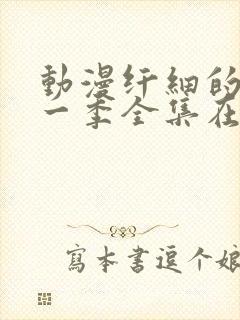 動漫纤細的
一季全集在
寫本書逗个娘